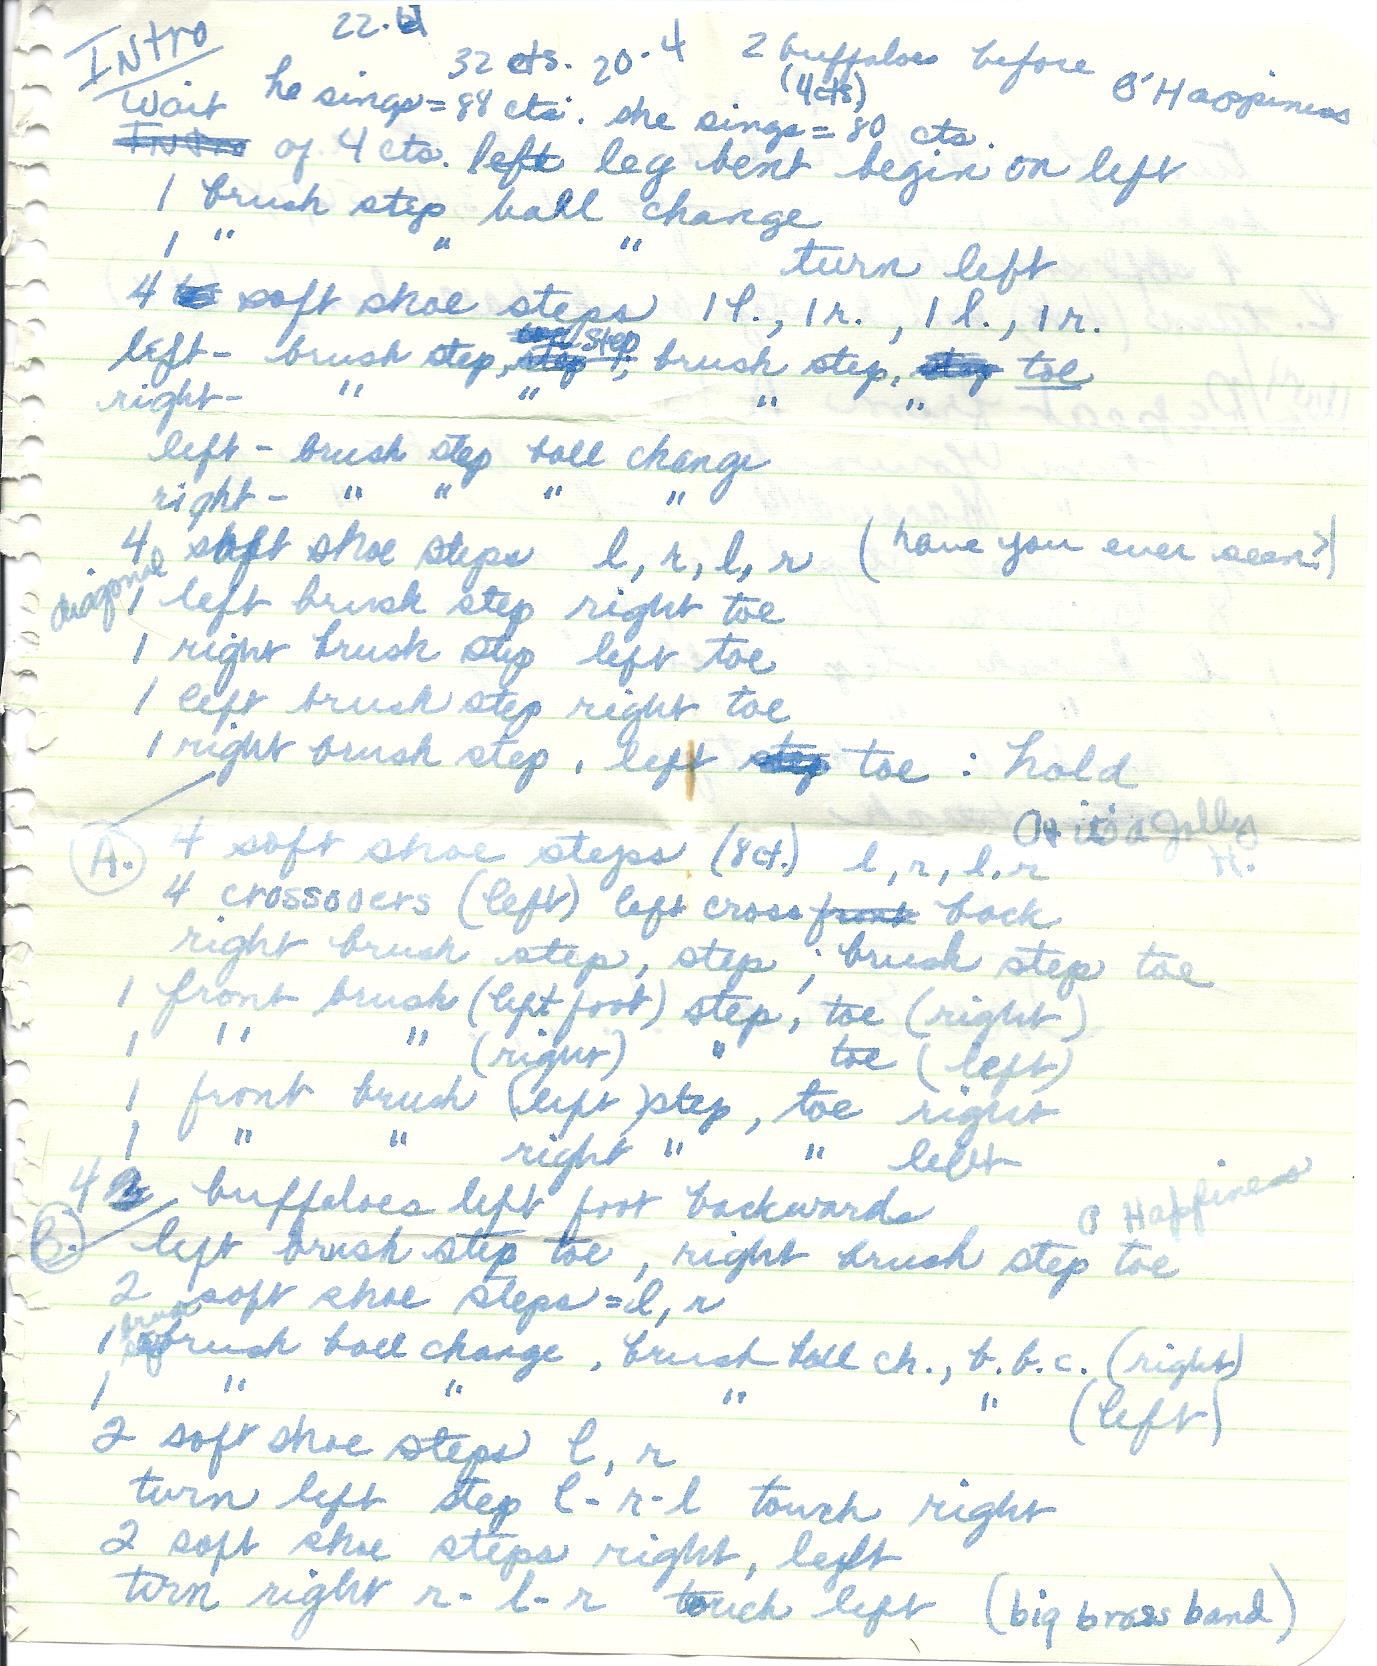 Intro
22.
32 cts. 20-4 2 buffaloes before O' Happiness
(4cts)
Wait he sings = 88 cts. she sings = 80 cts.
of 4 cts. left leg bent begin on left
1 brush step ball change
1 " " " turn left
4 soft shoe steps 1 l., 1 r., 1 l., 1 r.
left - brush step, step, brush step, toe
right - " " " "
left - brush step ball change
right - " " " "
4 soft shoe steps l, r, l, r (have you ever seen?)
diagonal
1 left brush step right toe
1 right brush step left toe
1 left brush step right toe
1 right brush step, left toe : hold
Oh it's a jolly H.
A. 4 soft shoe steps (8ct.) l, r, l, r
4 crossovers (left) left cross front back
right brush step, step, brush step toe
1 front brush (left foot) step, toe (right)
1 " " (right) " toe (left)
1 front brush (left) step, toe right
1 " " right " " left
4 buffaloes left foot backwards
O Happiness
B. left brush step toe, right brush step toe
2 soft shoe steps = l, r
1 brush ball change, brush ball ch., b.b.c. (right)
1 " " " " (left)
2 soft shoe steps l, r
turn left step l - r - l touch right
2 soft shoe steps right, left
turn right r - l - r touch left (big brass band)